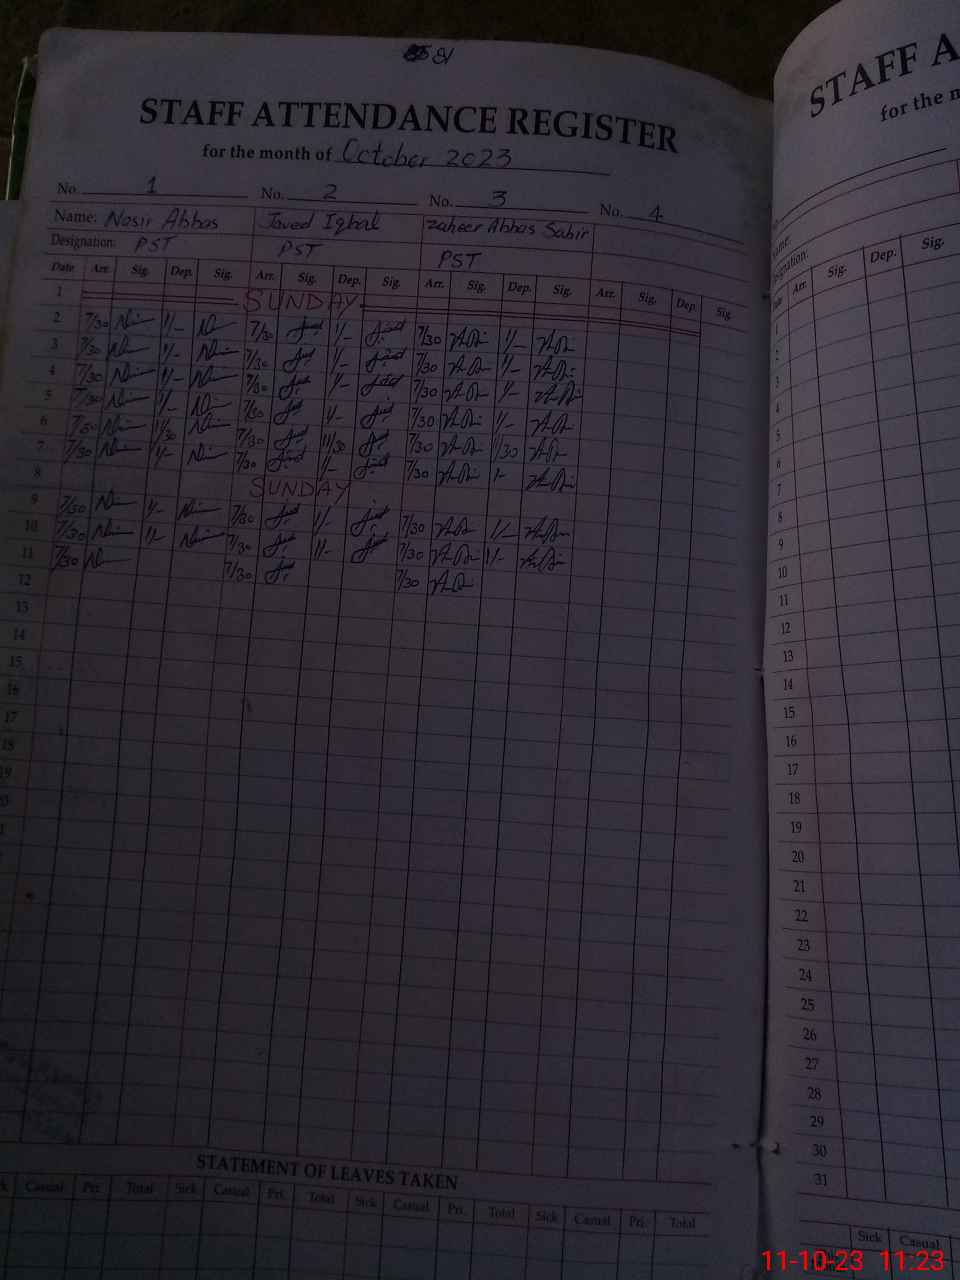 81
STAFF ATTENDANCE REGISTER
for the month of October 2023
No. 1 No. 2 No. 3 No. 4
Name: Nasir Abbas Javed Iqbal Zaheer Abbas Sabir
Designation: PST PST PST
Date Arr. Sig. Dep. Sig. Arr. Sig. Dep. Sig. Arr. Sig. Dep. Sig. Arr. Sig. Dep. Sig.
1 SUNDAY
2 7/30 1/- 7/30 1/- 7/30 1/-
3 7/30 1/- 7/30 1/- 7/30 1/-
4 7/30 1/- 7/30 1/- 7/30 1/-
5 7/30 1/- 7/30 1/- 7/30 1/-
6 7/30 11/30 7/30 11/30 7/30 11/30
7 7/30 1/- 7/30 1/- 7/30 1/-
8 SUNDAY
9 7/30 1/- 7/30 1/- 7/30 1/-
10 7/30 1/- 7/30 1/- 7/30 1/-
11 7/30 7/30 7/30
12
13
14
15
16
17
18
19
STATEMENT OF LEAVES TAKEN
Casual Pri. Total Sick Casual Pri. Total Sick Casual Pri. Total Sick Casual Pri. Total
STAFF A
for the m
Name:
Designation:
Arr. Sig. Dep. Sig.
1
2
3
4
5
6
7
8
9
10
11
12
13
14
15
16
17
18
19
20
21
22
23
24
25
26
27
28
29
30
31
Sick Casual
11-10-23 11:23